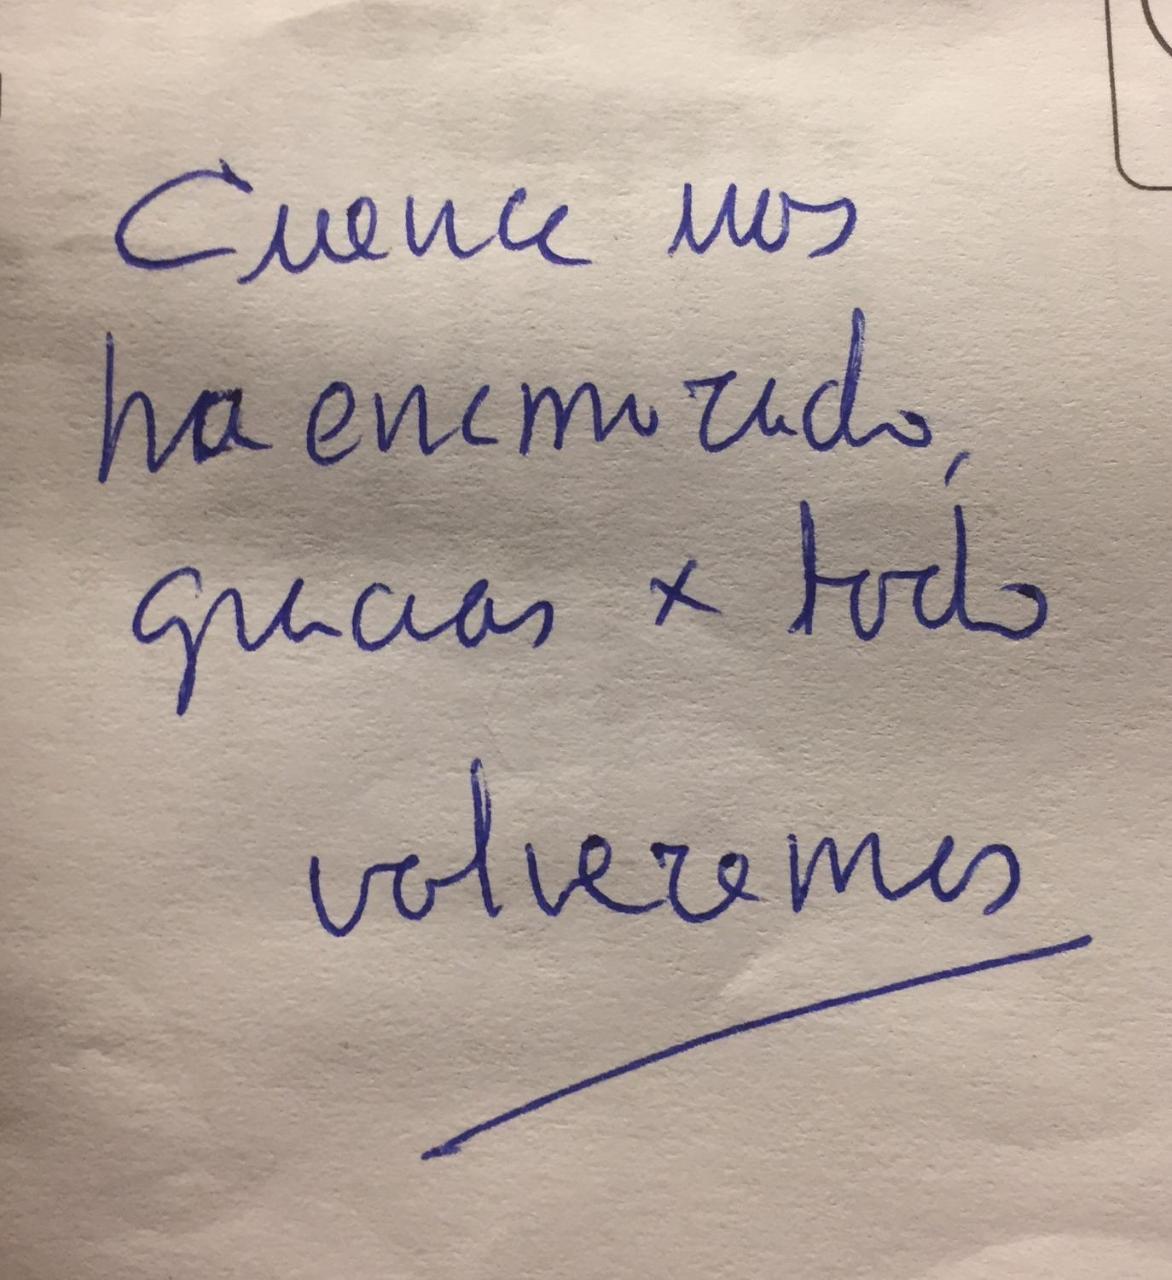 Cuenca nos
ha enamorado,
gracias x todo
volveremos